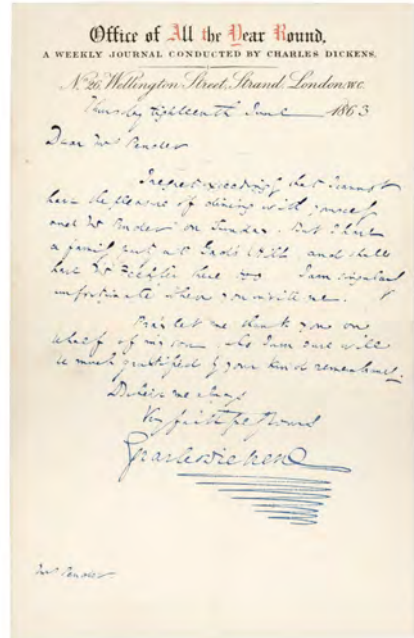 Office of All the Year Round,
A WEEKLY JOURNAL CONDUCTED BY CHARLES DICKENS.
No. 26, Wellington Street, Strand, London, W.C.
Thursday Eighteenth June 1863
Dear Mrs Pender
I regret exceedingly that I cannot
have the pleasure of dining with yourself
and Mr Pender on Sunday. But I have
a family party at Gad's Hill and shall
have Mr Fechter here too. I am singularly
unfortunate when you invite me.
Pray let me thank you on
behalf of my son, who I am sure will
be much gratified by your kind remembrance.
Believe me always
Very faithfully yours
Charles Dickens
Mrs Pender.